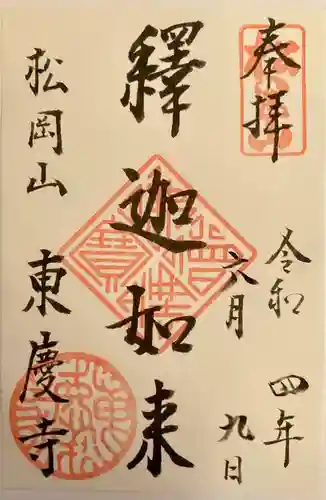 奉拝
令和四年
六月九日
釋迦如来
松岡山
東慶寺